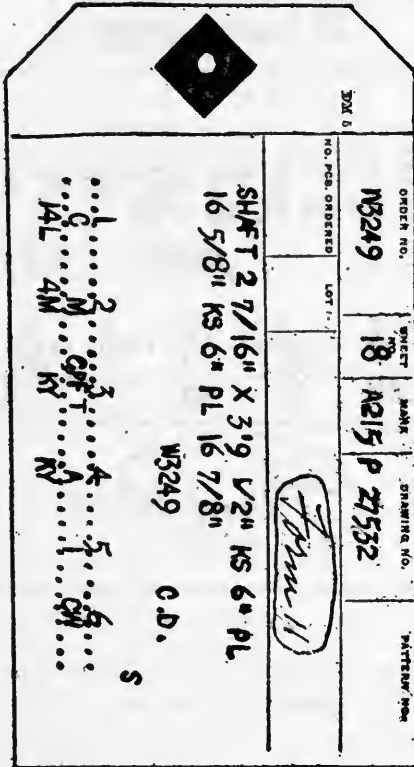 DM 5
ORDER NO. SHEET NO. MARK DRAWING NO. PATTERN NOS
W3249 18 A215 P 27532
NO. PCS. ORDERED LOT
Form 11
SHAFT 2 7/16" X 3'9 1/2" KS 6" PL
16 5/8" KS 6" PL 16 7/8"
W3249 C.D.
S
...1.....2.....3.....4.....5.....6...
C M GPFT A I CW
14L 4M KY KY